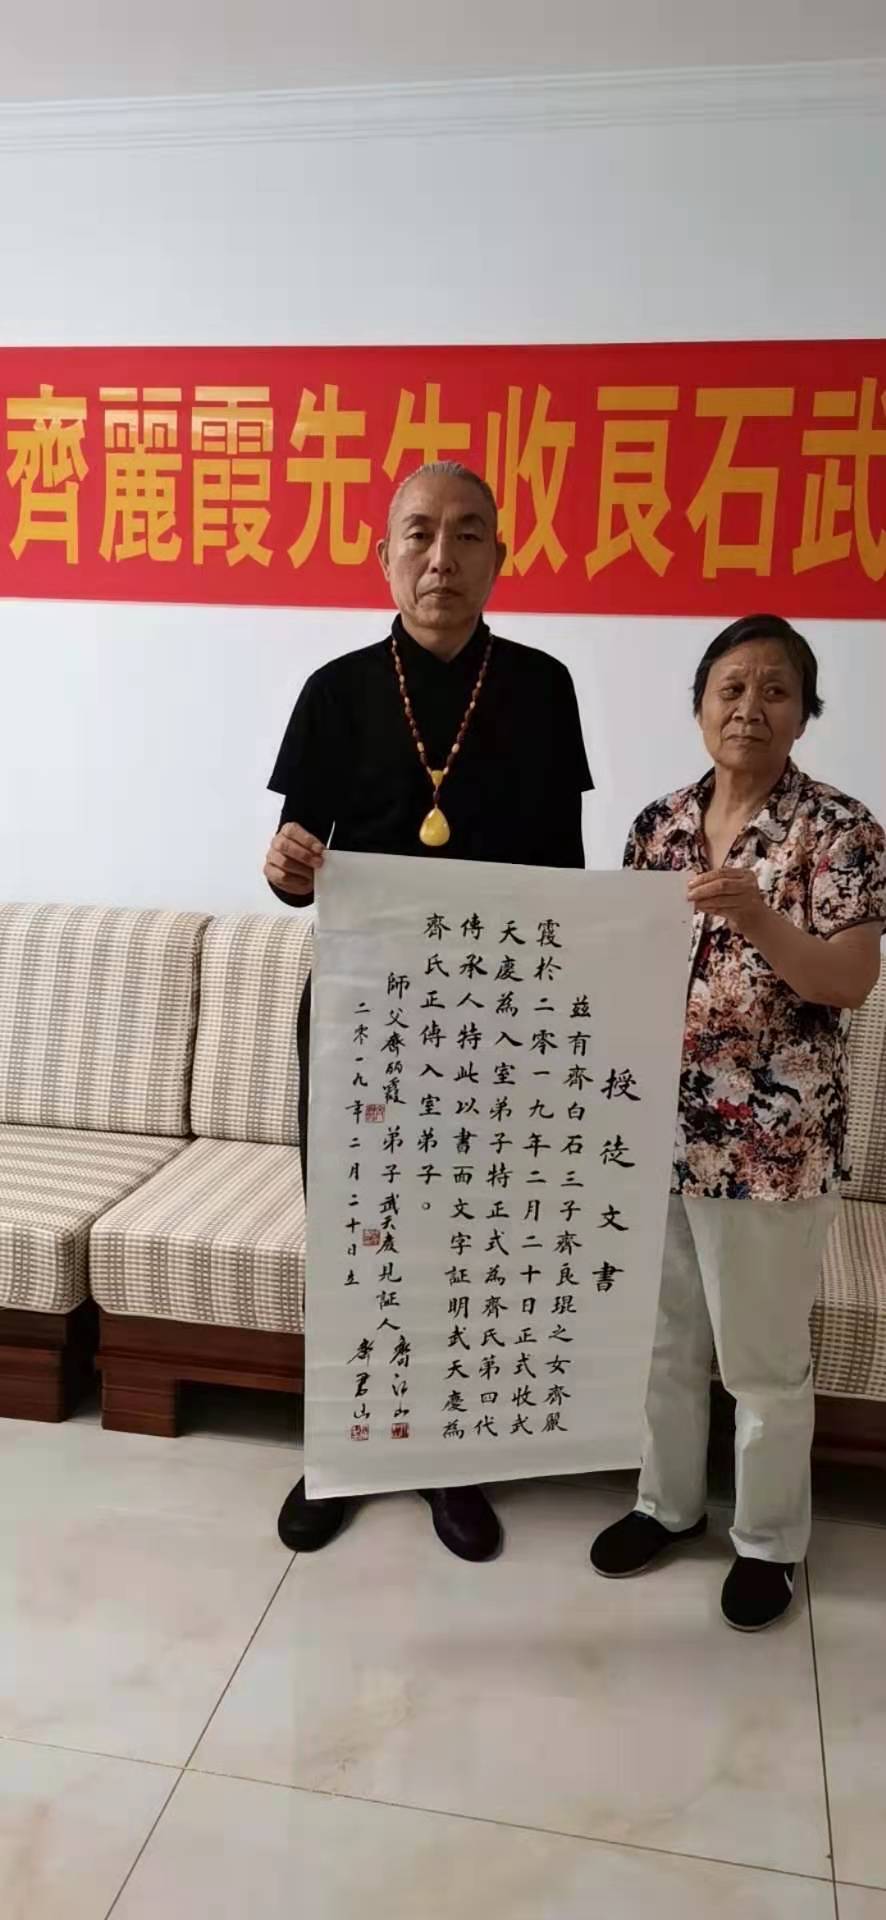 齊麗霞先生收良石武
授徒文書
茲有齊白石三子齊良琨之女齊麗
霞於二零一九年二月二十日正式收武
天慶為入室弟子特正式為齊氏第四代
傳承人特此以書面文字証明武天慶為
齊氏正傳入室弟子。
師父齊丽霞 弟子武天慶見証人齊江山
齊君山
二零一九年二月二十日立